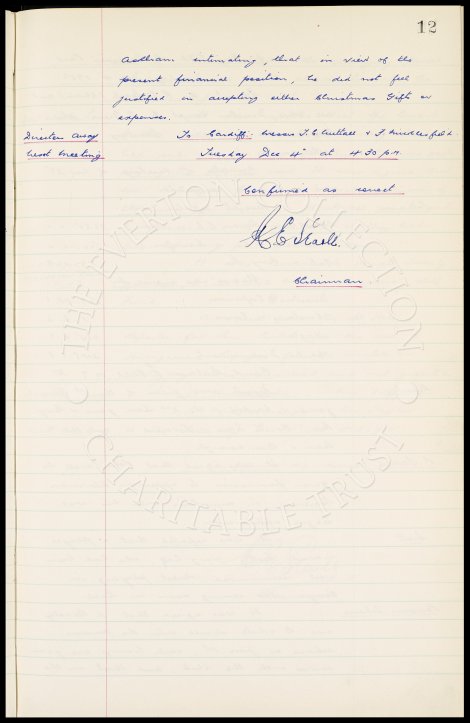 12
intimating, that in view of the
present financial position, he did not feel
justified in accepting either Christmas Gifts or
expenses.
Directors away To Cardiff: Messrs T. C. Nuttall & F
Next Meeting Tuesday Dec 4th at 4.30 p.m.
Confirmed as correct
Chairman.
THE EVERTON COLLECTION
CHARITABLE TRUST